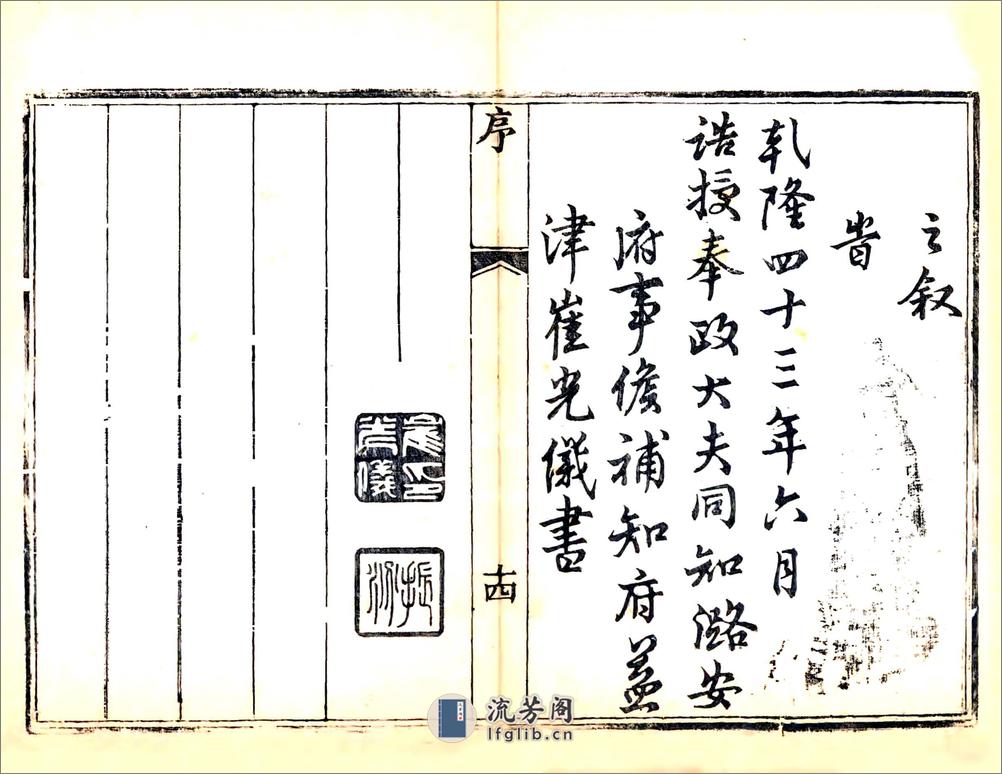 之叙
旹
乾隆四十三年六月
誥授奉政大夫同知潞安
府事候補知府益
津崔光儀書
序
十四
崔印光儀
流芳阁
lfglib.cn